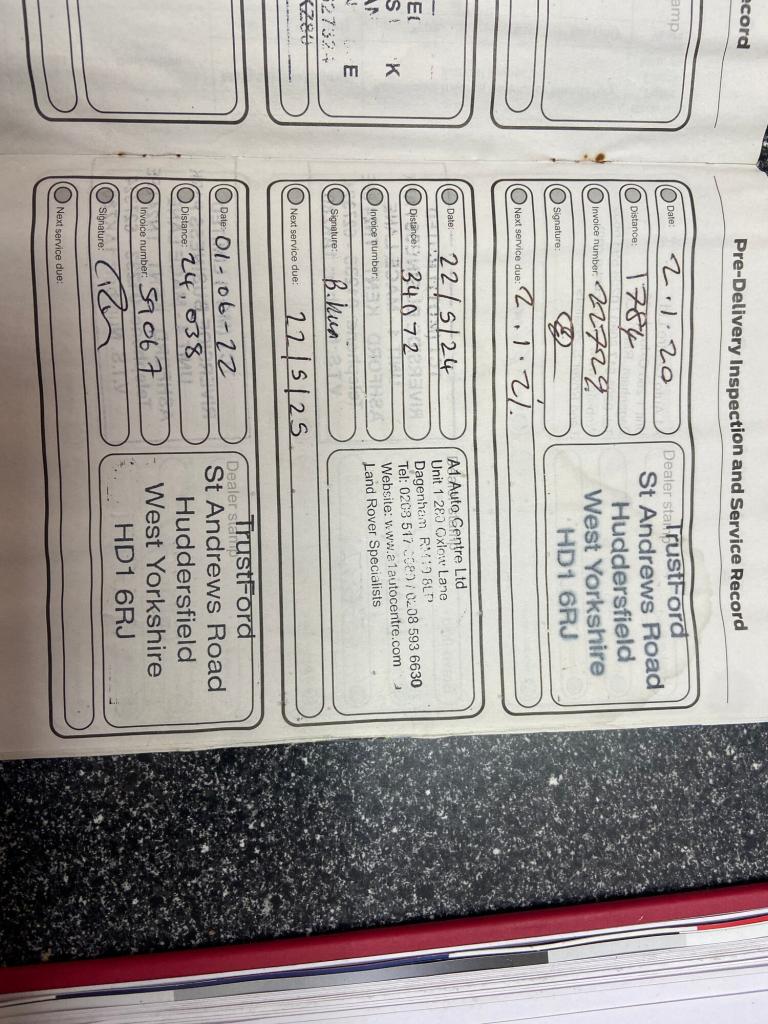 Pre-Delivery Inspection and Service Record
Date: 2.1.20
Distance: 1784
Invoice number: 22729
Signature:
Next service due: 2.1.21.
Dealer stamp
TrustFord
St Andrews Road
Huddersfield
West Yorkshire
HD1 6RJ
Date: 22/5/24
Distance: 34072
Invoice number:
Signature:
Next service due: 22/5/25
A1 Auto Centre Ltd
Unit 1 280 Oxlow Lane
Dagenham RM10 8LP
Tel: 0208 517 / 0208 593 6630
Website: www.a1autocentre.com
Land Rover Specialists
Date: 01-06-22
Distance: 24,038
Invoice number: 59067
Signature:
Next service due:
Dealer stamp
TrustFord
St Andrews Road
Huddersfield
West Yorkshire
HD1 6RJ